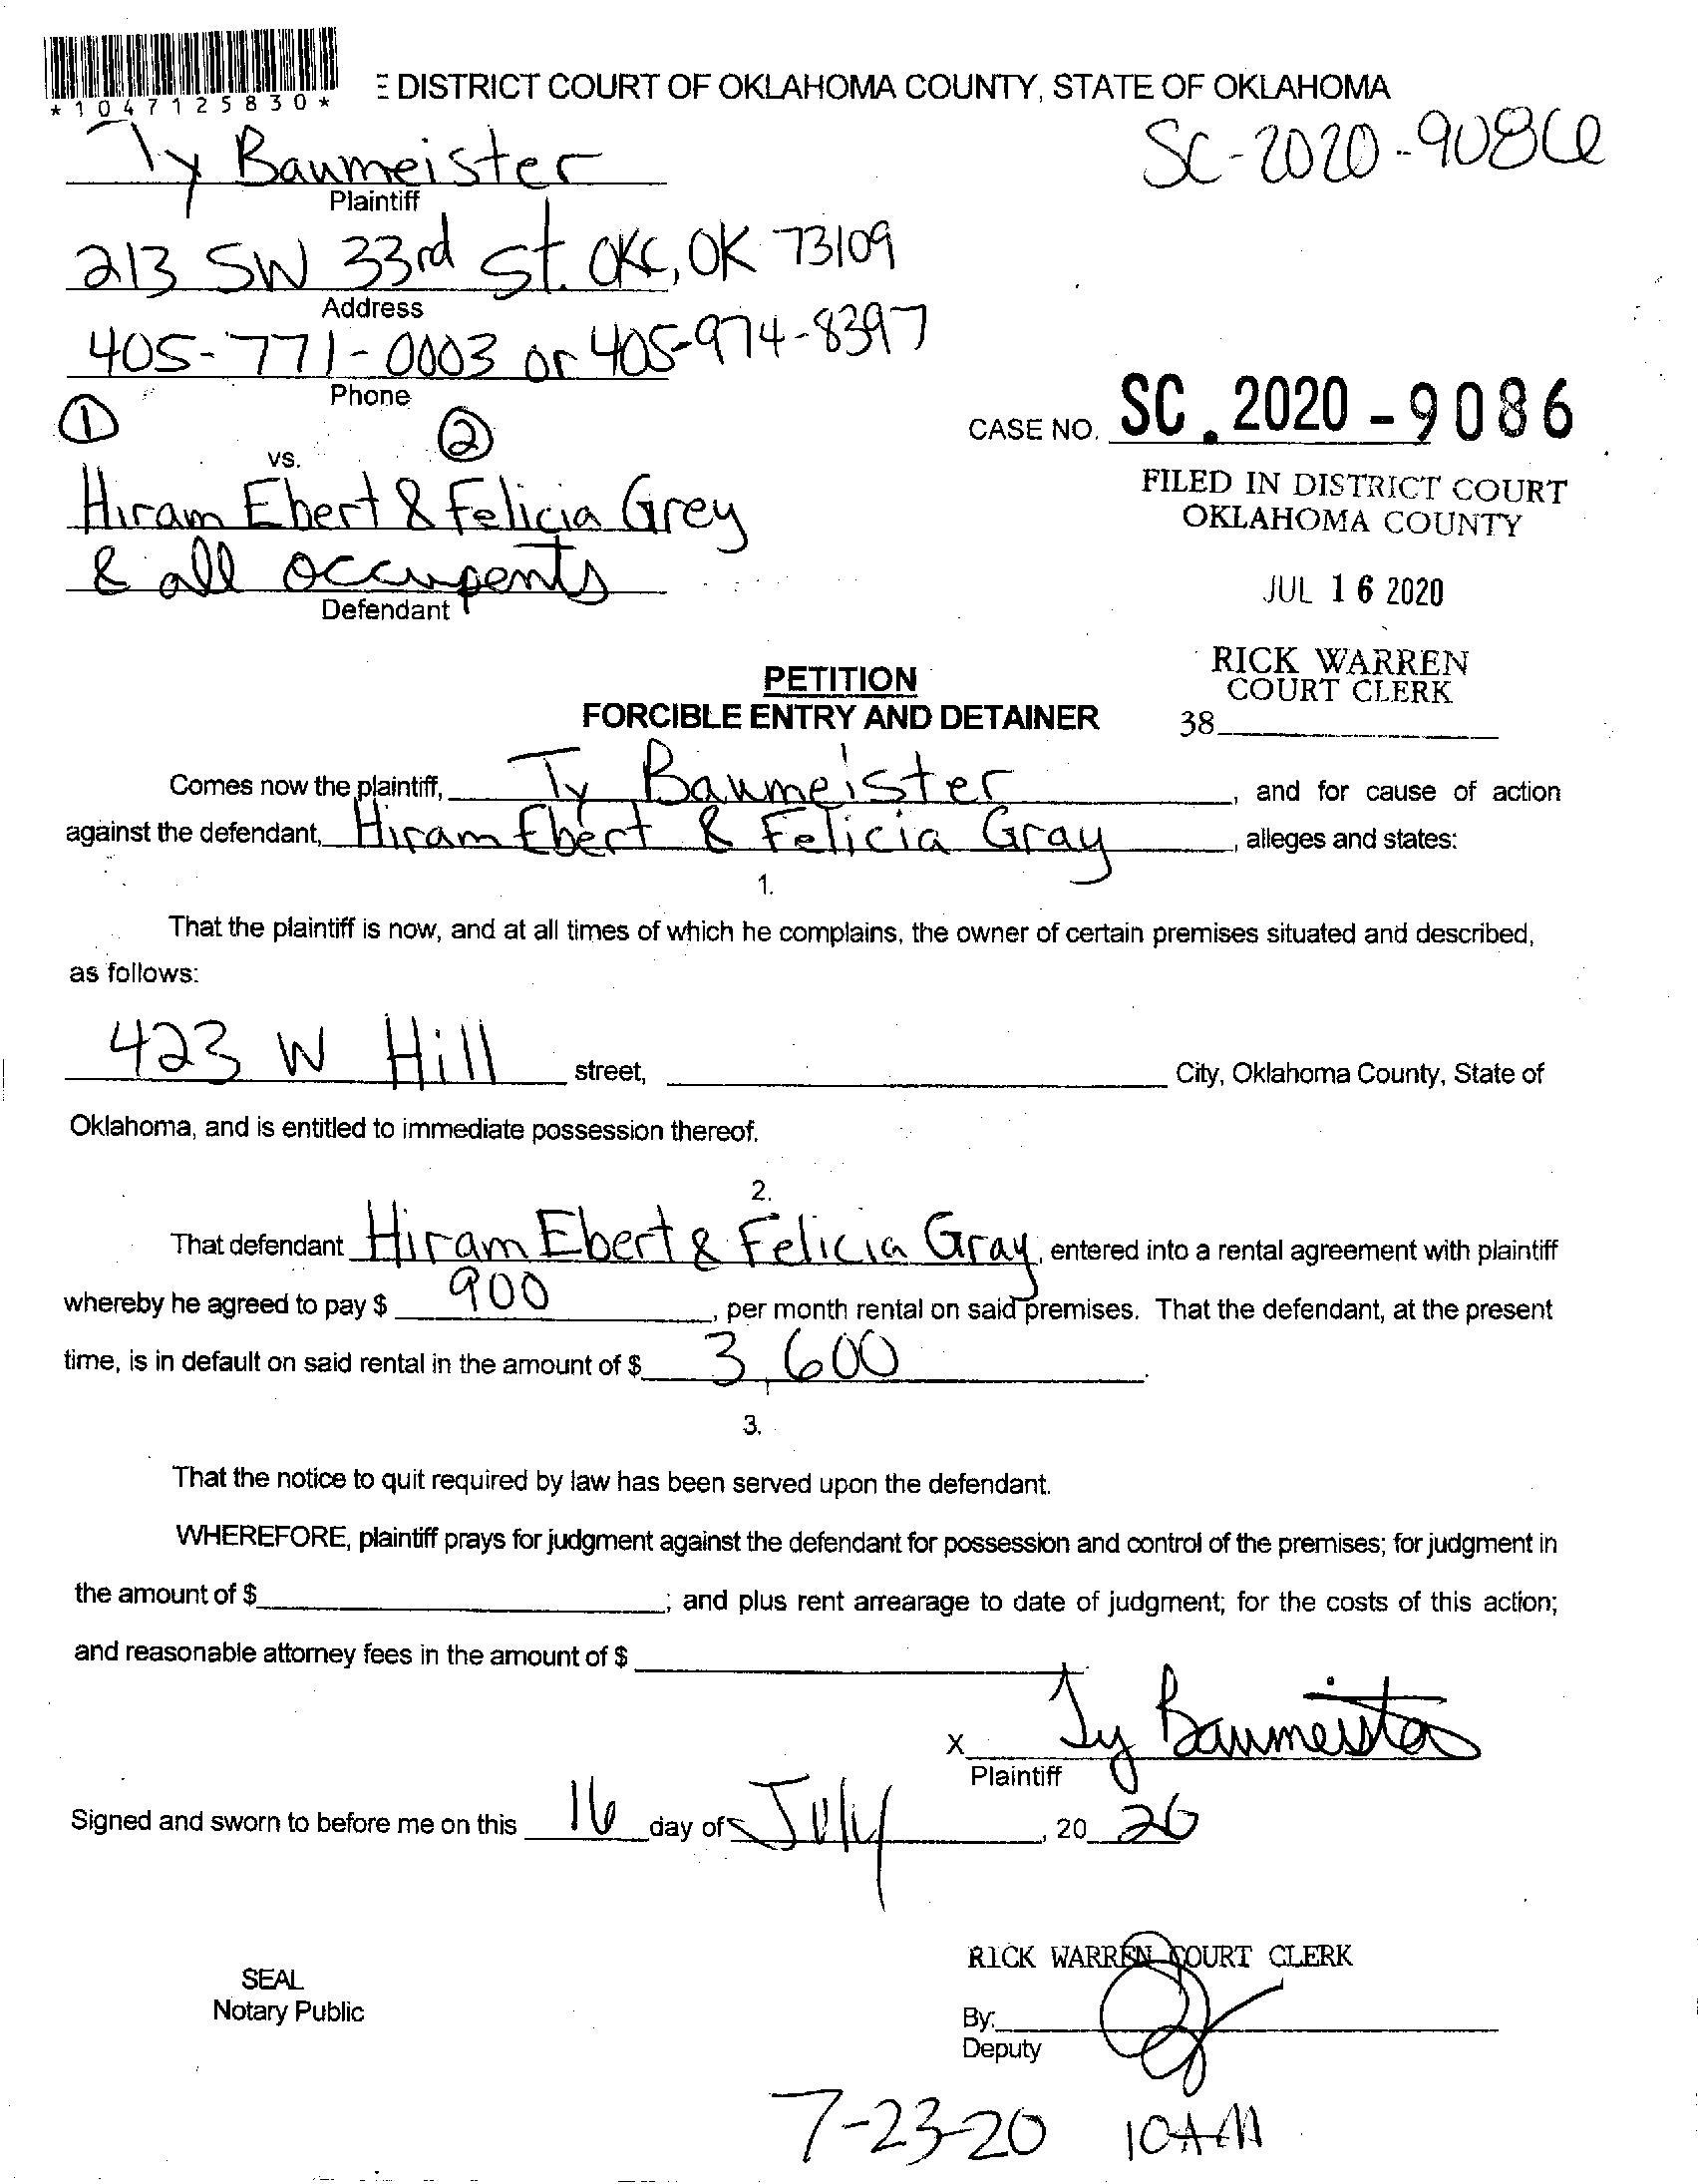 *1047125830*
E DISTRICT COURT OF OKLAHOMA COUNTY, STATE OF OKLAHOMA
Ty Baumeister
SC-2020-9086
Plaintiff
213 SW 33rd St. OKC, OK 73109
Address
405-771-0003 or 405-974-8397
Phone
1 2
CASE NO. SC. 2020 - 9086
vs.
FILED IN DISTRICT COURT
OKLAHOMA COUNTY
Hiram Ebert & Felicia Grey
& all occupents
JUL 16 2020
Defendant
RICK WARREN
COURT CLERK
38
PETITION
FORCIBLE ENTRY AND DETAINER
Comes now the plaintiff, Ty Baumeister, and for cause of action
against the defendant, Hiram Ebert & Felicia Gray, alleges and states:
1.
That the plaintiff is now, and at all times of which he complains, the owner of certain premises situated and described,
as follows:
423 W Hill street, City, Oklahoma County, State of
Oklahoma, and is entitled to immediate possession thereof.
2.
That defendant Hiram Ebert & Felicia Gray, entered into a rental agreement with plaintiff
whereby he agreed to pay $ 900, per month rental on said premises. That the defendant, at the present
time, is in default on said rental in the amount of $ 3,600.
3.
That the notice to quit required by law has been served upon the defendant.
WHEREFORE, plaintiff prays for judgment against the defendant for possession and control of the premises; for judgment in
the amount of $ ; and plus rent arrearage to date of judgment; for the costs of this action;
and reasonable attorney fees in the amount of $
X Ty Baumeister
Plaintiff
Signed and sworn to before me on this 16 day of July, 20 20
RICK WARREN COURT CLERK
SEAL
Notary Public
By:
Deputy
7-23-20 10AM